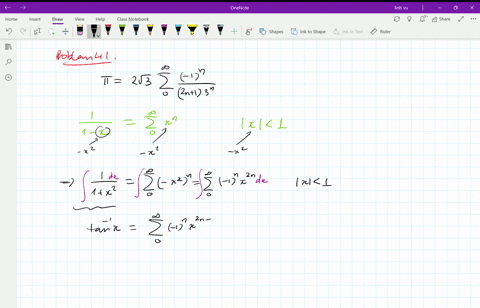 OneNote
linh vu
File Home Insert Draw View Help Class Notebook
Share
Shapes Ink to Shape Ink to Text Math
Problem 41.
π = 2√3 ∑_0^∞ (-1)^n / ((2n+1) 3^n)
1/(1-x) = ∑_0^∞ x^n |x| < 1
-x² -x² -x²
→ ∫ 1/(1+x²) dx = ∫ ∑_0^∞ (-x²)^n = ∫ ∑_0^∞ (-1)^n x^{2n} dx |x| < 1
tan^{-1} x = ∑_0^∞ (-1)^n x^{2n-